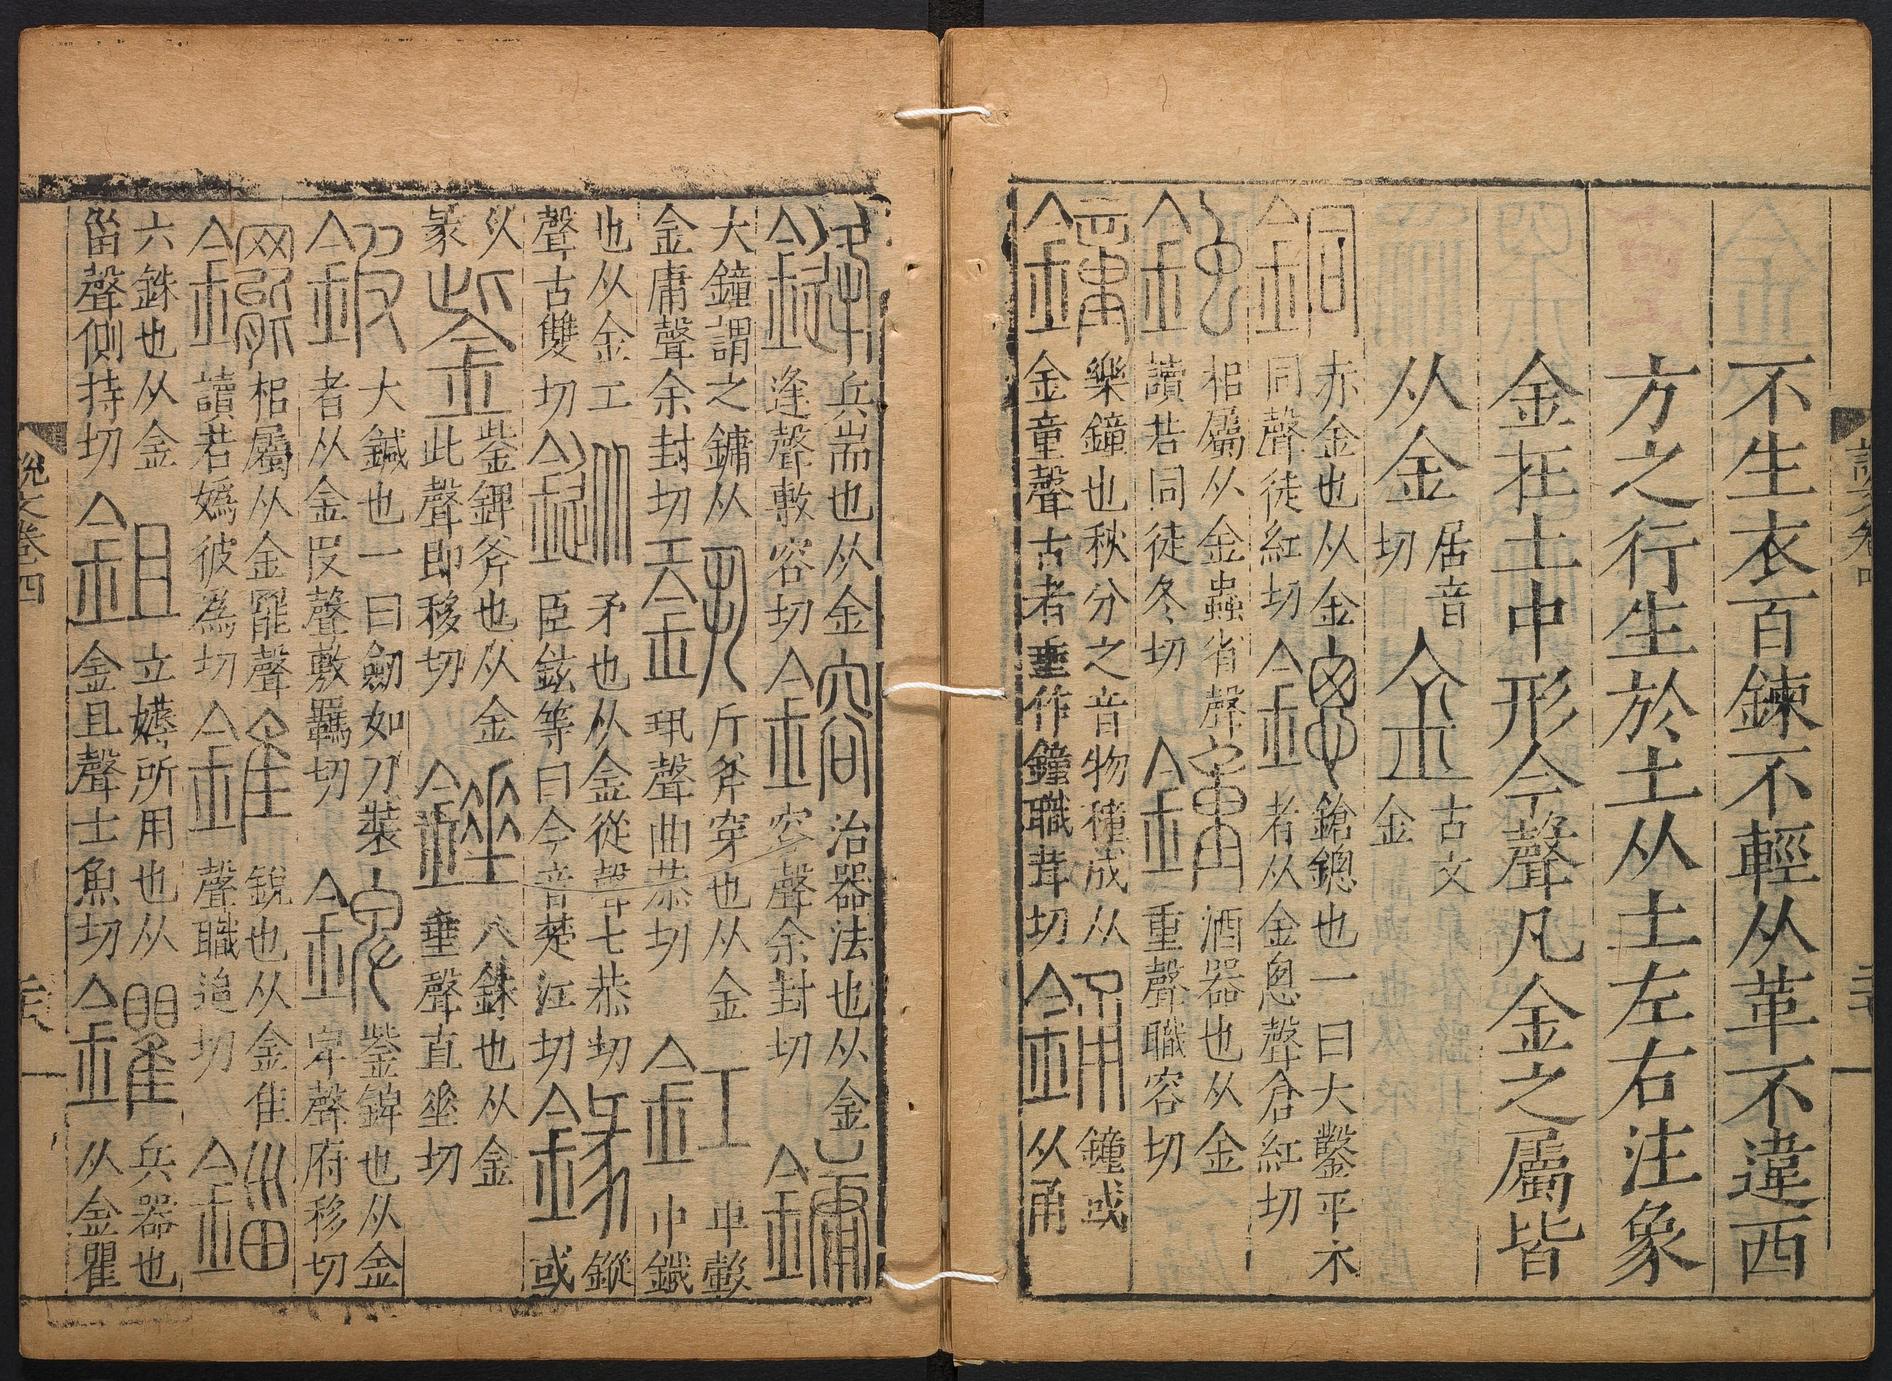 說文卷四
不生衣百鍊不輕从革不違西
方之行生於土从土左右注象
金在土中形今聲凡金之屬皆
从金居音切金古文金
銅赤金也从金同聲徒紅切鏓鎗鏓也一曰大鑿平木者从金悤聲倉紅切
鉵相屬从金蟲省聲讀若同徒冬切鍾酒器也从金重聲職容切
鐘樂鐘也秋分之音物種成从金童聲古者垂作鐘職茸切銿鐘或从甬
鏠兵耑也从金逢聲敷容切鎔冶器法也从金容聲余封切鏞
大鐘謂之鏞从金庸聲余封切銎斤斧穿也从金巩聲曲恭切釭車轂中鐵
也从金工聲古雙切鏦矛也从金從聲七恭切臣鉉等曰今音楚江切 鏦或
从彖鈭鈭錍斧也从金此聲即移切錘八銖也从金垂聲直垂切
鈹大鍼也一曰劒如刀裝者从金皮聲敷羈切錍鈭錍也从金卑聲府移切
䥯相屬从金罷聲讀若嬀彼為切錐銳也从金隹聲職追切錙
六銖也从金甾聲側持切鉏立薅所用也从金且聲士魚切鑺兵器也从金瞿
說文卷四